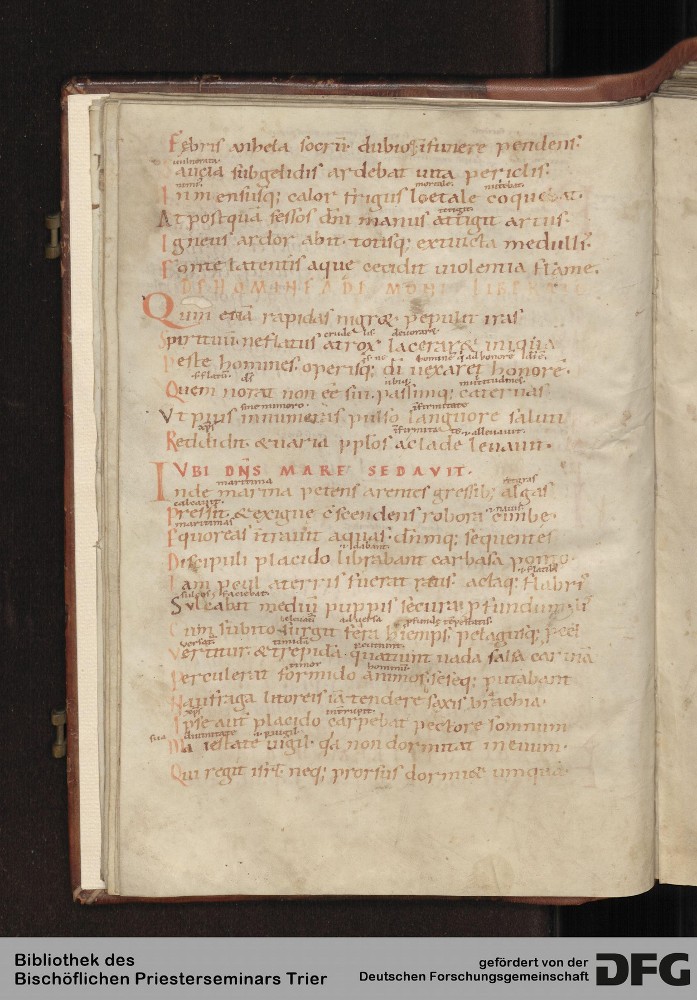 Febris anhela socrū dubio ī funere pendens·
vulnerata
Saucia subgelidis ardebat uita periclis·
nimis mortale· incebat·
Inmensusq; calor frigus loetale coquebat·
tetigit
At postquā fessos dn̄i manus attigit artus·
Igneus ardor abit· totisq; extincta medullis
Fonte latentis aquę cecidit uiolentia flāmę·
DE HOMINE A DEMONI LIBERATO
Qum etiā rapidas nigrę pepulit iras
crudelis deuorare
Spirituū ne flatus atrox lacerare iniqua
Peste homines· operisq; di uexaret honore·
Quem norat non eē sui passimq; cateruas
sine numero· īfirmitate
Vt pius innumeras pulso languore saluti
Reddidit· & uaria pp̄los a clade leuauit·
VBI DN̄S MARE SEDAVIT·
maritima
Inde marina petens arentes gressib; algas
calcauit· nauis
Pressit· & exiguę cōscendens robora cimbę·
maritimas
Equoreas ītrauit aquas· dn̄mq; sequentes
Discipuli placido librabant carbasa porto·
Iam pcul a terris fuerat ratis· actaq; flabris
sulcos faciebat·
Sulcabat mediū puppis secura pfundum·
Cum subito surgit fera hiemps· pelagusq; pcel
versat· timidā
Vertitur· & trepidā quatiunt uada salsa carinā
timor hominū·
Perculerat formido animos· seseq; putabant
Naufraga litoreis iā tendere saxis brachia·
Ipse aut̄ placido carpebat pectore somnum
sua diuinitate
Maiestate uigil· q̄a non dormitat in euum·
Qui regit isrl̄· neq; prorsus dormiet umquā·
Bibliothek des
Bischöflichen Priesterseminars Trier
gefördert von der
Deutschen Forschungsgemeinschaft
DFG